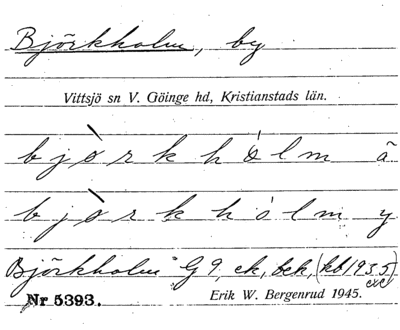 Björkholm, by
Vittsjö sn V. Göinge hd, Kristianstads län.
b j ö̀ r k h ó l m ã
b j ö̀ r k h ó l m y
Björkholm" G9, ek, bek, (kb 1935)
Nr 5393. Erik W. Bergenrud 1945.